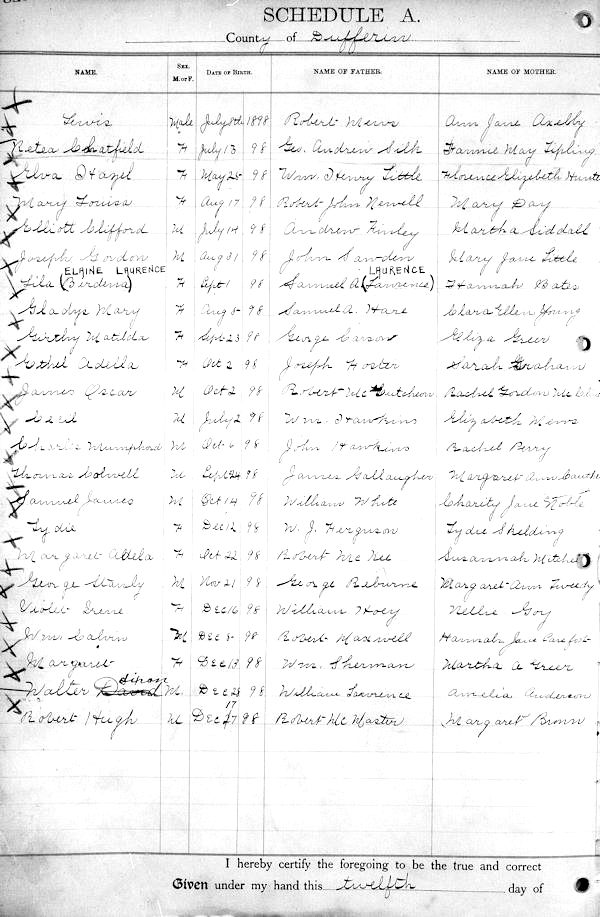 SCHEDULE A.
County of Dufferin
NAME. SEX. M. or F. DATE OF BIRTH. NAME OF FATHER. NAME OF MOTHER.
Lewis Male July 8th 1898 Robert Mews Ann Jane Axelby
Retea Chatfield F July 13 98 Geo. Andrew Silk Fannie May Tipling
Elva Hazel F May 25 98 Wm. Henry Little Florence Elizabeth Hunte
Mary Louisa F Aug 17 98 Robert John Newell Mary Day
Elliott Clifford M July 14 98 Andrew Finley Martha Siddall
Joseph Gordon M Aug 31 98 John Sawden Mary Jane Little
ELAINE LAURENCE LAURENCE
Lila (Berdena) F Sept 1 98 Samuel A (Lawrence) Hannah Bates
Gladys Mary F Aug 5 98 Samuel A. Hare Clara Ellen Young
Girthy Matilda F Sept 23 98 George Carson Eliza Greer
Ethel Adella F Oct 2 98 Joseph Foster Sarah Graham
James Oscar M Oct 2 98 Robert McCutcheon Rachel Gordon
Cecil M July 2 98 Wm. Hawkins Elizabeth Mews
Charles Mumphord M Oct 6 98 John Hawkins Rachel Perry
Thomas Colwell M Sept 24 98 James Gallaugher Margaret Ann
Samuel James M Oct 14 98 William White Charity Jane Noble
Lydie F Dec 12 98 W. J. Ferguson Lydie Skelding
Margaret Adela F Oct 22 98 Robert McKee Susannah Mitchel
George Stanly M Nov 21 98 George Reburne Margaret Ann Tweedy
Violet Irene F Dec 16 98 William Hoey Nellie Goy
Wm Calvin M Dec 5 98 Robert Maxwell Hannah Jane
Margaret F Dec 13 98 Wm. Sherman Martha A Greer
Walter David M Dec 28 98 William Lawrence Amelia Anderson
17
Robert Hugh M Dec 17 98 Robert McMaster Margaret Brown
I hereby certify the foregoing to be the true and correct
Given under my hand this twelfth day of